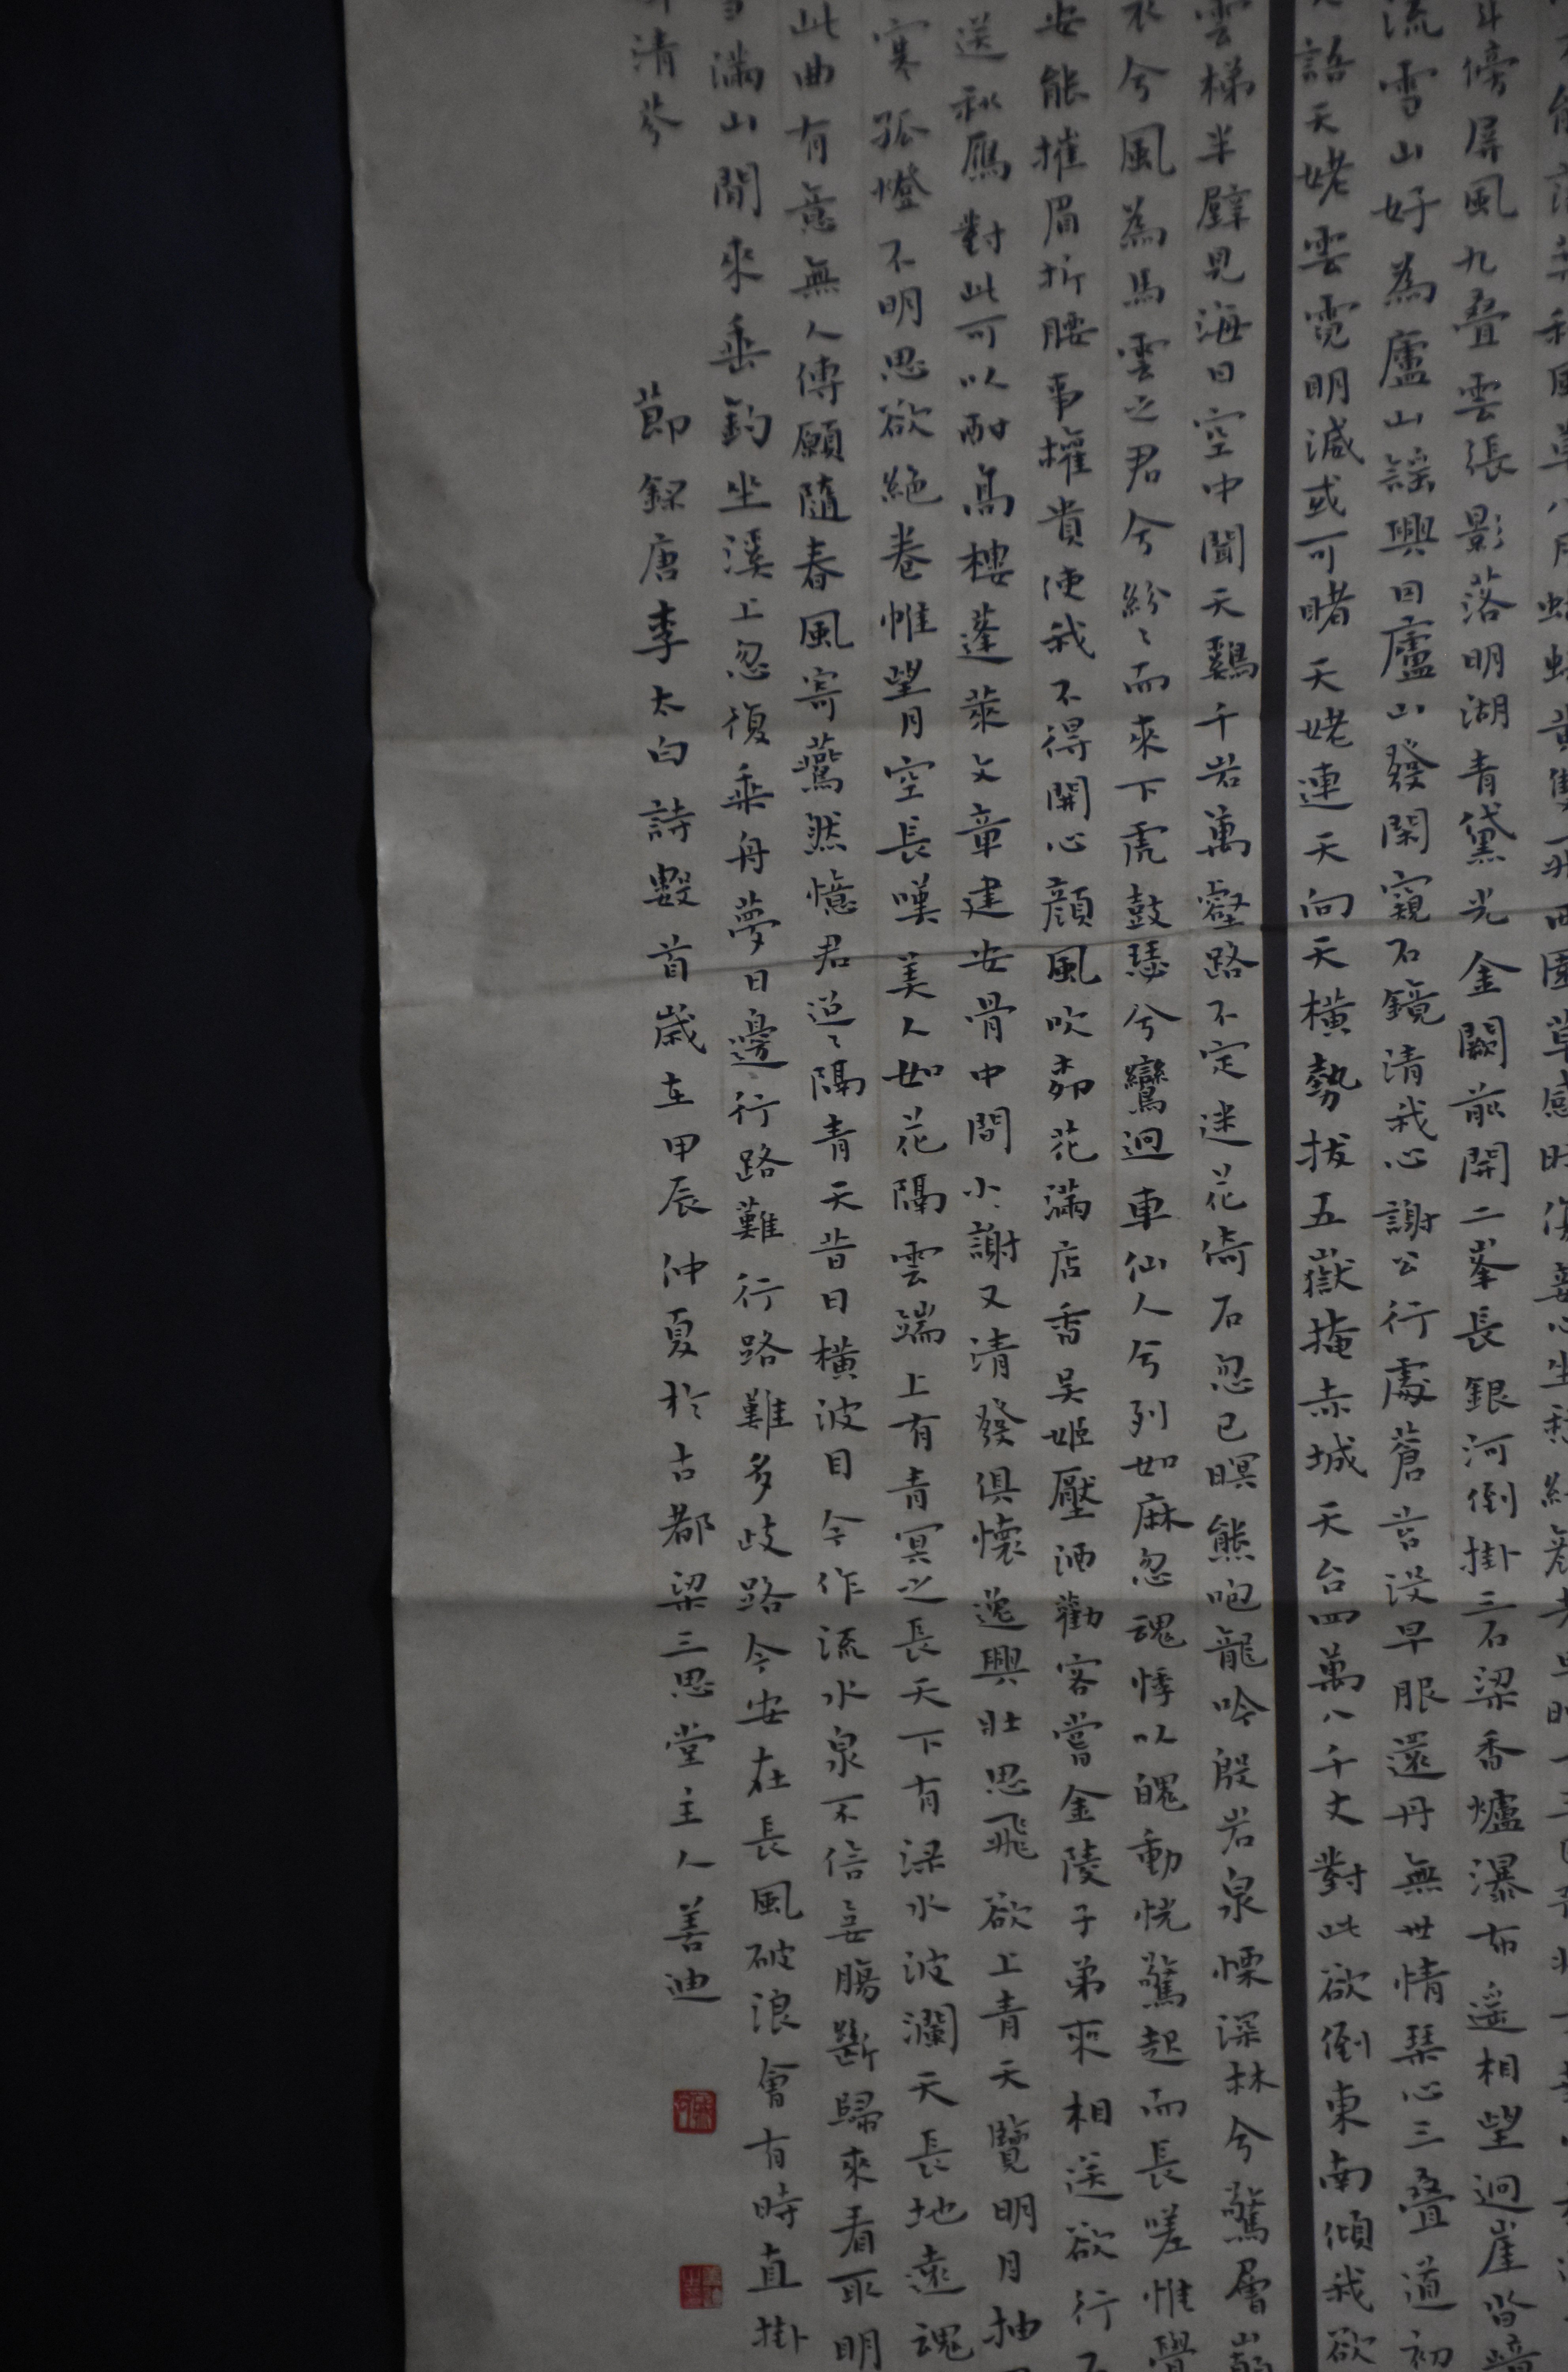 斗傍屏風九疊雲張影落明湖青黛光金闕前開二峯長銀河倒掛三石梁香爐瀑布遥相望迥崖沓
流雪山好為廬山謡興因廬山發閑窺石鏡清我心謝公行處蒼苔没早服還丹無世情琴心三疊道初
語天姥雲霓明滅或可睹天姥連天向天橫勢拔五嶽掩赤城天台四萬八千丈對此欲倒東南傾我欲
雲梯半壁見海日空中聞天鷄千岩萬壑路不定迷花倚石忽已暝熊咆龍吟殷岩泉慄深林兮驚層
衣兮風為馬雲之君兮紛〻而來下虎鼓瑟兮鸞迴車仙人兮列如麻忽魂悸以魄動恍驚起而長嗟惟覺
安能摧眉折腰事權貴使我不得開心顔風吹柳花滿店香吴姬壓酒勸客嘗金陵子弟來相送欲行不
送秋鴈對此可以酣高樓蓬萊文章建安骨中間小謝又清發俱懷逸興壯思飛欲上青天覽明月抽
寒孤燈不明思欲絶卷帷望月空長嘆美人如花隔雲端上有青冥之長天下有渌水波瀾天長地遠魂
此曲有意無人傳願隨春風寄燕然憶君迢〻隔青天昔日橫波目今作流水泉不信妾腸斷歸來看取明
滿山閒來垂釣坐溪上忽復乘舟夢日邊行路難行路難多歧路今安在長風破浪會有時直掛
清芬
節録唐李太白詩數首歲在甲辰仲夏於古都梁三思堂主人善迪